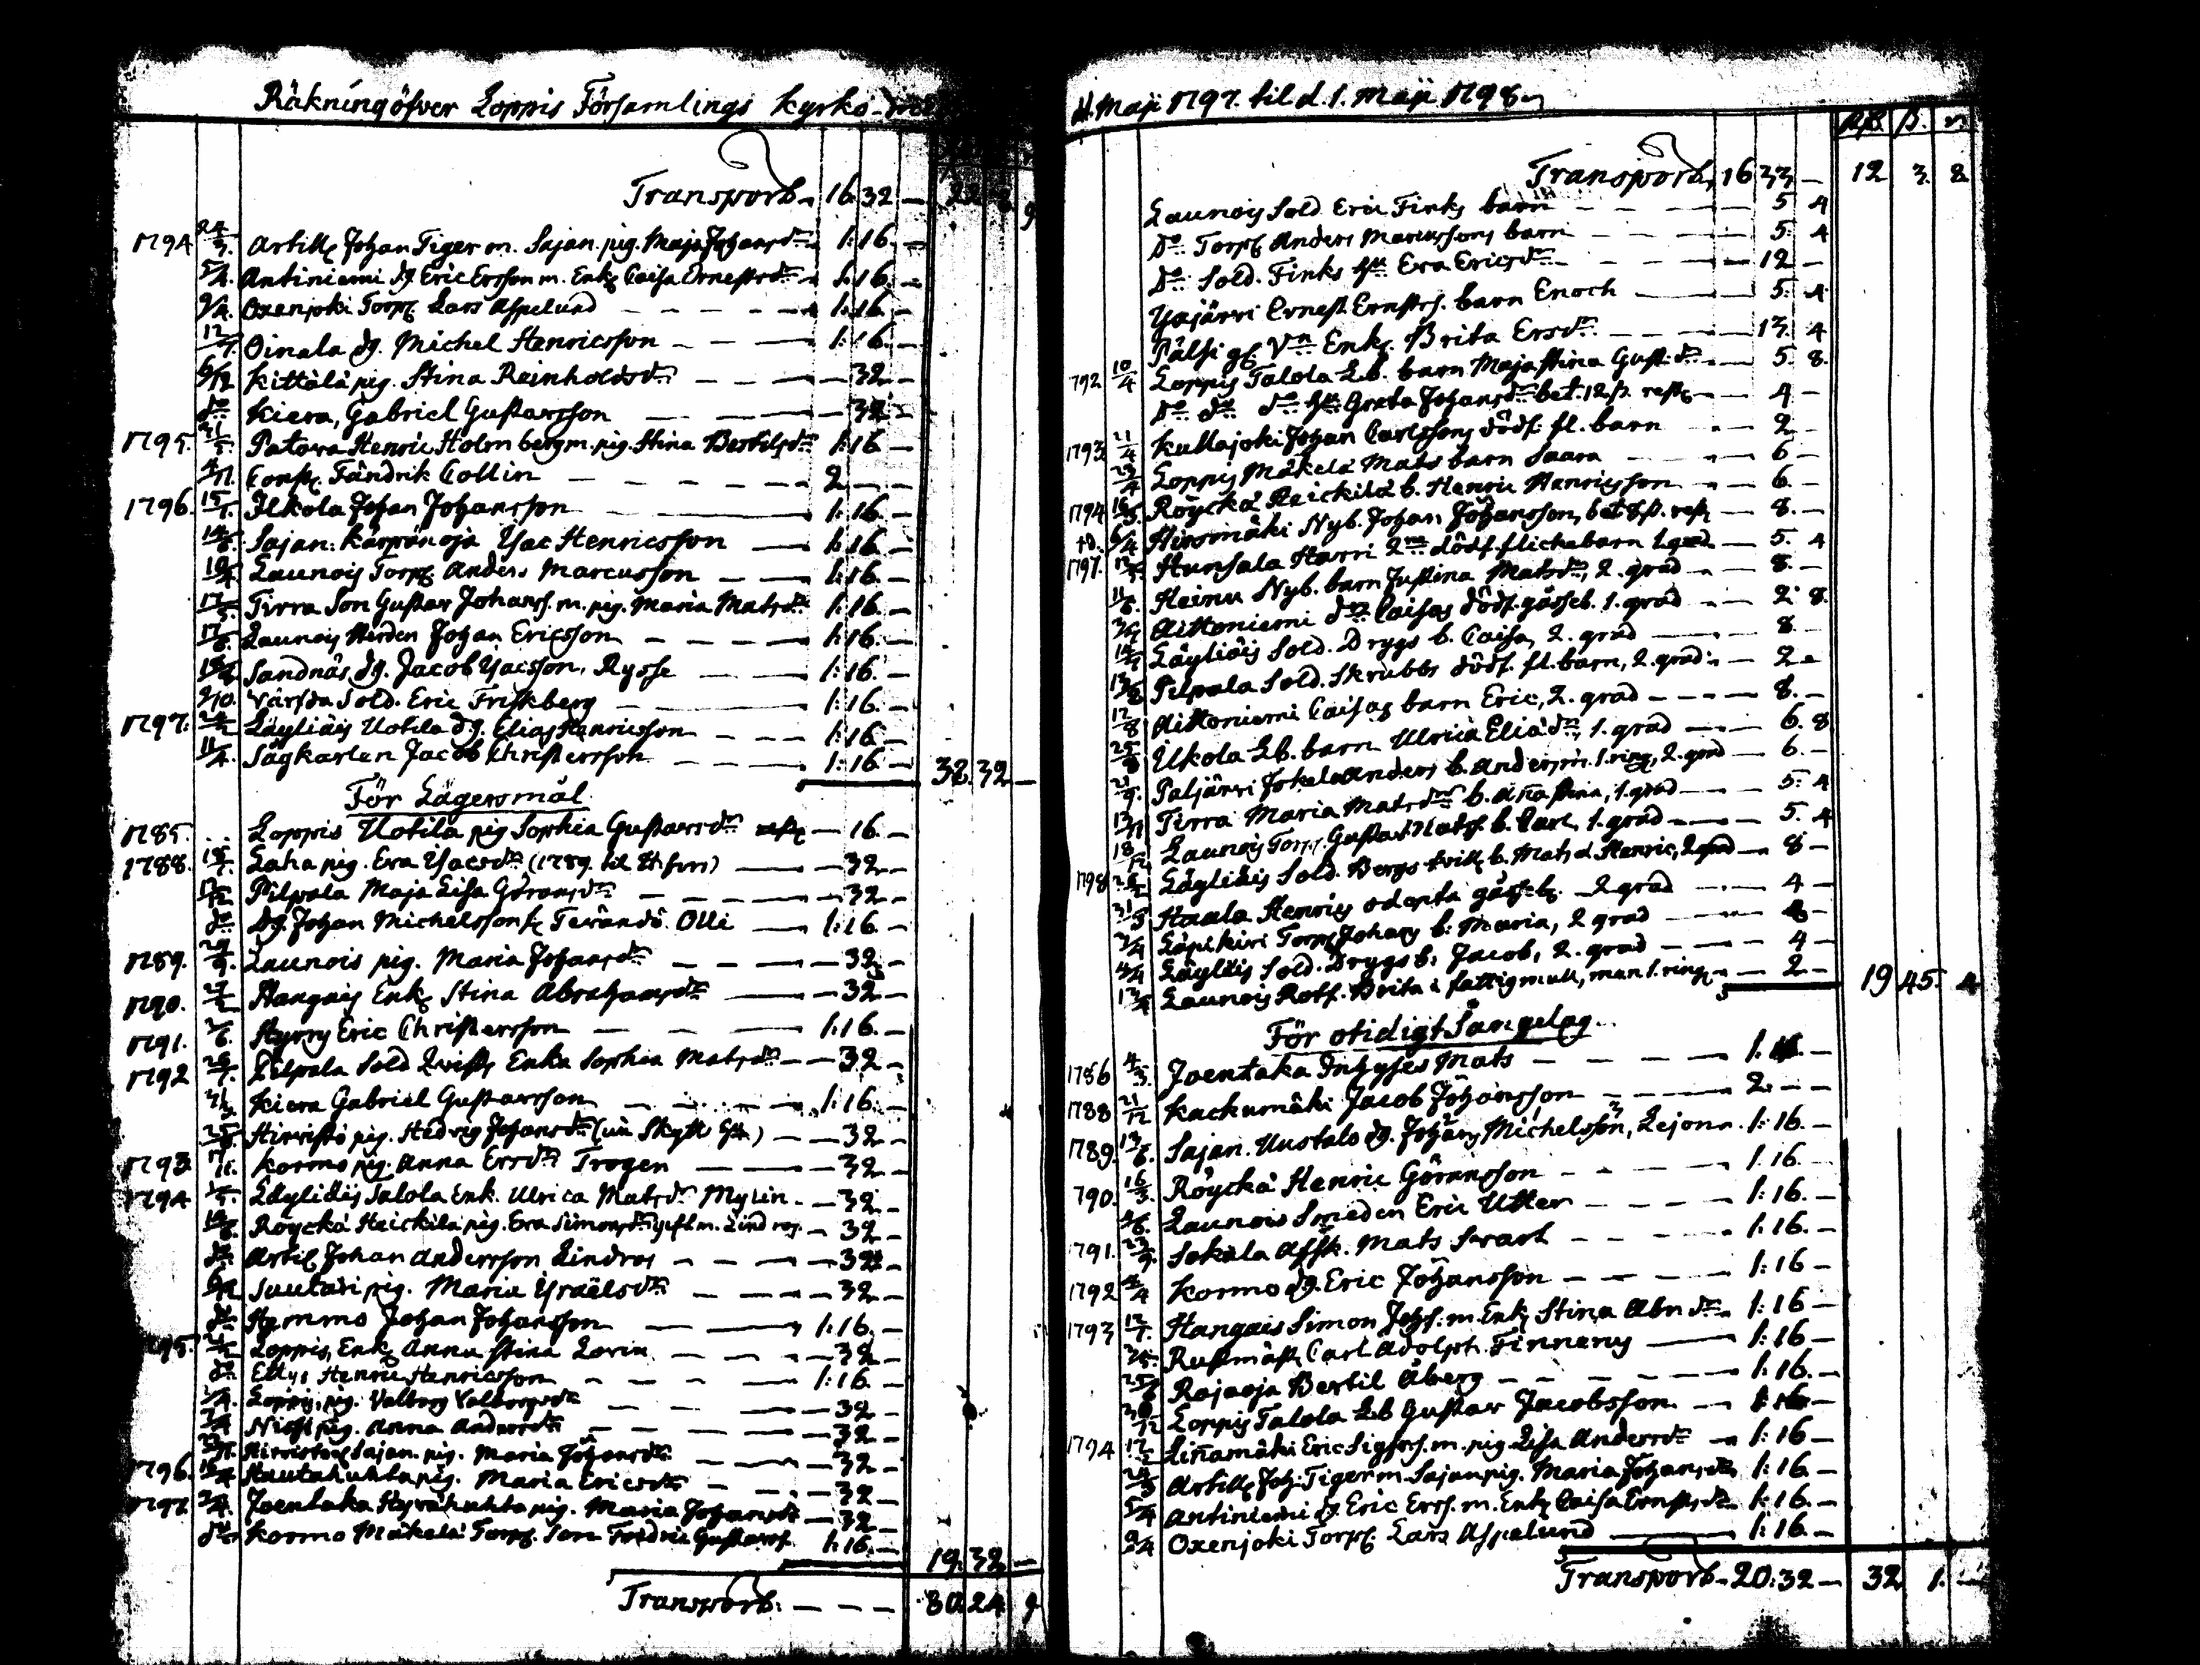 Räkning öfver Loppis Församlings Kyrko-
Transport 16 32 — 22 8 9
1794 24/3. Artill. Johan Tiger m. Sajan. pig. Maja Johansdr — 1:16 —
5/4. Antiniemi dg. Eric Ersson m. Enk. Caisa Ernestsdr — 1:16 —
9/4. Oxenjoki Torp. Lars Aspelund — 1:16 —
Oinala dg. Michel Henricsson — 1:16 —
6/12 Kittälä pig. Stina Reinholdsdr — 32 —
do Kiera, Gabriel Gustavsson — 32 —
1795. Patova Henric Holmberg m. pig. Stina Bertilsdr 1:16 —
Fändrik Collin — 2 —
1796. Ilkola Johan Johansson — 1:16 —
Sajan. Karpänoja Ysac Henricsson — 1:16 —
Launois Torp. Anders Marcusson — 1:16 —
Tirra Son Gustav Johans. m. pig. Maria Matsdr 1:16 —
Launois Herden Johan Ericsson — 1:16 —
Sandnäs dg. Jacob Ysacsson, Rysse — 1:16 —
2/10. Vårfda Sold. Eric Friskberg — 1:16 —
1797. Läyliäis Uotila dg. Elias Henricsson — 1:16 —
11/4. Sågkarlen Jacob Christersson — 1:16 — 38 32 —
För Lägersmål
1785. Loppis Uotila pig Sophia Gustavsdr — 16 —
1788. Laha pig. Eva Ysacsdr (1789. til H:fors) — 32 —
Pilpala Maja Lisa Göransdr — 32 —
do Dg. Johan Michelsson Terändö Olli — 1:16 —
1789. Launois pig. Maria Johansdr — 32 —
1790. Hangais Enk. Stina Abrahamsdr — 32 —
1791. Hyrry Eric Christersson — 1:16 —
1792 Pilpala Sold Qvists Enka Sophia Matsdr — 32 —
Kiera Gabriel Gustavsson — 1:16 —
Hirvistö pig. Hedvig Johansdr — 32 —
1793. Kormo pig. Anna Ersdr Trogen — 32 —
1794 Läyliäis Salola Enk. Ulrica Matsdr Mylin — 32 —
Röyckä Heickilä pig. Eva Simonsdr gift m. Lindros — 32 —
do Artil. Johan Andersson Lindros — 32 —
Suutari pig. Maria Ysraëlsdr — 32 —
do Hymmo Johan Johansson — 1:16 —
95. Loppis, Enk. Anna Stina Lorin — 32 —
do Ellys Henric Henricsson — 1:16 —
Loppis, pig. Valborg Valborgsdr — 32 —
pig. Anna Andersdr — 32 —
Sajan. pig. Maria Johansdr — 32 —
1796. Hautakuhta pig. Maria Ericsdr — 32 —
1797. Joentaka Hyväkuhta pig. Maria Johansdr — 32 —
do Kormo Mäkelä Torp. Son Fredric Gustavss. 1:16 — 19. 32 —
Transport — — — 80. 24 9
d. 1. Maji 1797. til d. 1. Maji 1798.
Rd. ß. rs
Transport, 16 33 — 12 3. 8
Launois Sold. Eric Finks barn — 5 4
Do Torp. Anders Marcussons barn — 5. 4
Do Sold. Finks hu Eva Ericsdr — 12 —
Yajärvi Ernest Ernests. barn Enoch — 5. 4
Pälsi Enk. Brita Ersdr — 13. 4
792 10/4 Loppis Talola Lb. barn Maja Stina Gust. dr — 5. 8.
Do do do hu Greta Johansdr bet. 12 ß. rest — 4 —
1793 21/4 Kullajoki Johan Carlssons dödf. fl. barn — 2 —
23/4 Loppis Mäkelä Mats barn Saara — 6 —
Röyckä Heickilä b. Henric Henricsson — 6. —
1794 Hirsimäki Nyb. Johan Johansson, bet 8 ß. rest — 8. —
Hunsala Harri dödf. flickebarn 1. grad — 5. 4
1797. Heinu Nyb. barn Justina Matsdr, 2. grad — 8 —
Aittoniemi Caisas dödf. gosseb. 1. grad — 2 8.
Läyliäis Sold. Drygs b. Caisa, 2. grad — 8. —
Pilpala Sold. Skrubbs dödf. fl. barn, 2. grad — 2 —
Aittoniemi Caisas barn Eric, 2. grad — 8. —
Ilkola Lb. barn Ulrica Eliädr, 1. grad — 6. 8
Paljärvi Jokela Anders b. Anders, m. 1. ring, 2. grad — 6 —
Tirra Maria Matsdr b. Aña Stina, 1. grad — 5. 4
Launois Torp. Gustav Mats. b. Carl, 1. grad — 5. 4
1798 Läyliäis Sold. Bergs tvill. b. Mats o. Henric, 2 grad — 8 —
Haala Henrics odöpta gosseb. 2 grad — 4 —
Läpikivi Torp. Johans b. Maria, 2 grad — 8 —
Läyliäis Sold. Drygs b. Jacob, 2. grad — 4 —
Launois Rotf. Brita i fattigmull, man 1. ring — 2 — 19 45. 4
För otidigt Sängelag.
1786 4/3. Joentaka Inhyses Mats — 1. 16 —
1788 21/12 Kackumäki Jacob Johansson — 2. — —
1789. Sajan. Uustalo dg. Johans Michelsson, Lejon — 1:16. —
790. 16/3. Röyckä Henric Göransson — 1:16. —
Launois Smeden Eric Utter — 1:16. —
1791. Sokala Afsk. Mats Svart — 1:16. —
1792 4/4 Kormo dg. Eric Johansson — 1:16 —
1793 Hangais Simon Johs. m. Enk. Stina Abr. dr — 1:16 —
Rustmäst. Carl Adolph Finneny — 1:16 —
Rajaoja Bertil Åberg — 1:16. —
Loppis Talola Lb Gustav Jacobsson — 1 16 —
1794 Linamäki Eric Sigfrs. m. pig. Lisa Andersdr — 1:16 —
24/3 Artill. Joh. Tiger m. Sajan pig. Maria Johansdr 1:16 —
5/4 Antiniemi dg. Eric Erss. m. Enk. Caisa Ernstsdr 1:16. —
9/4 Oxenjoki Torp. Lars Aspelund — 1:16. —
Transport — 20:32 — 32 1. —